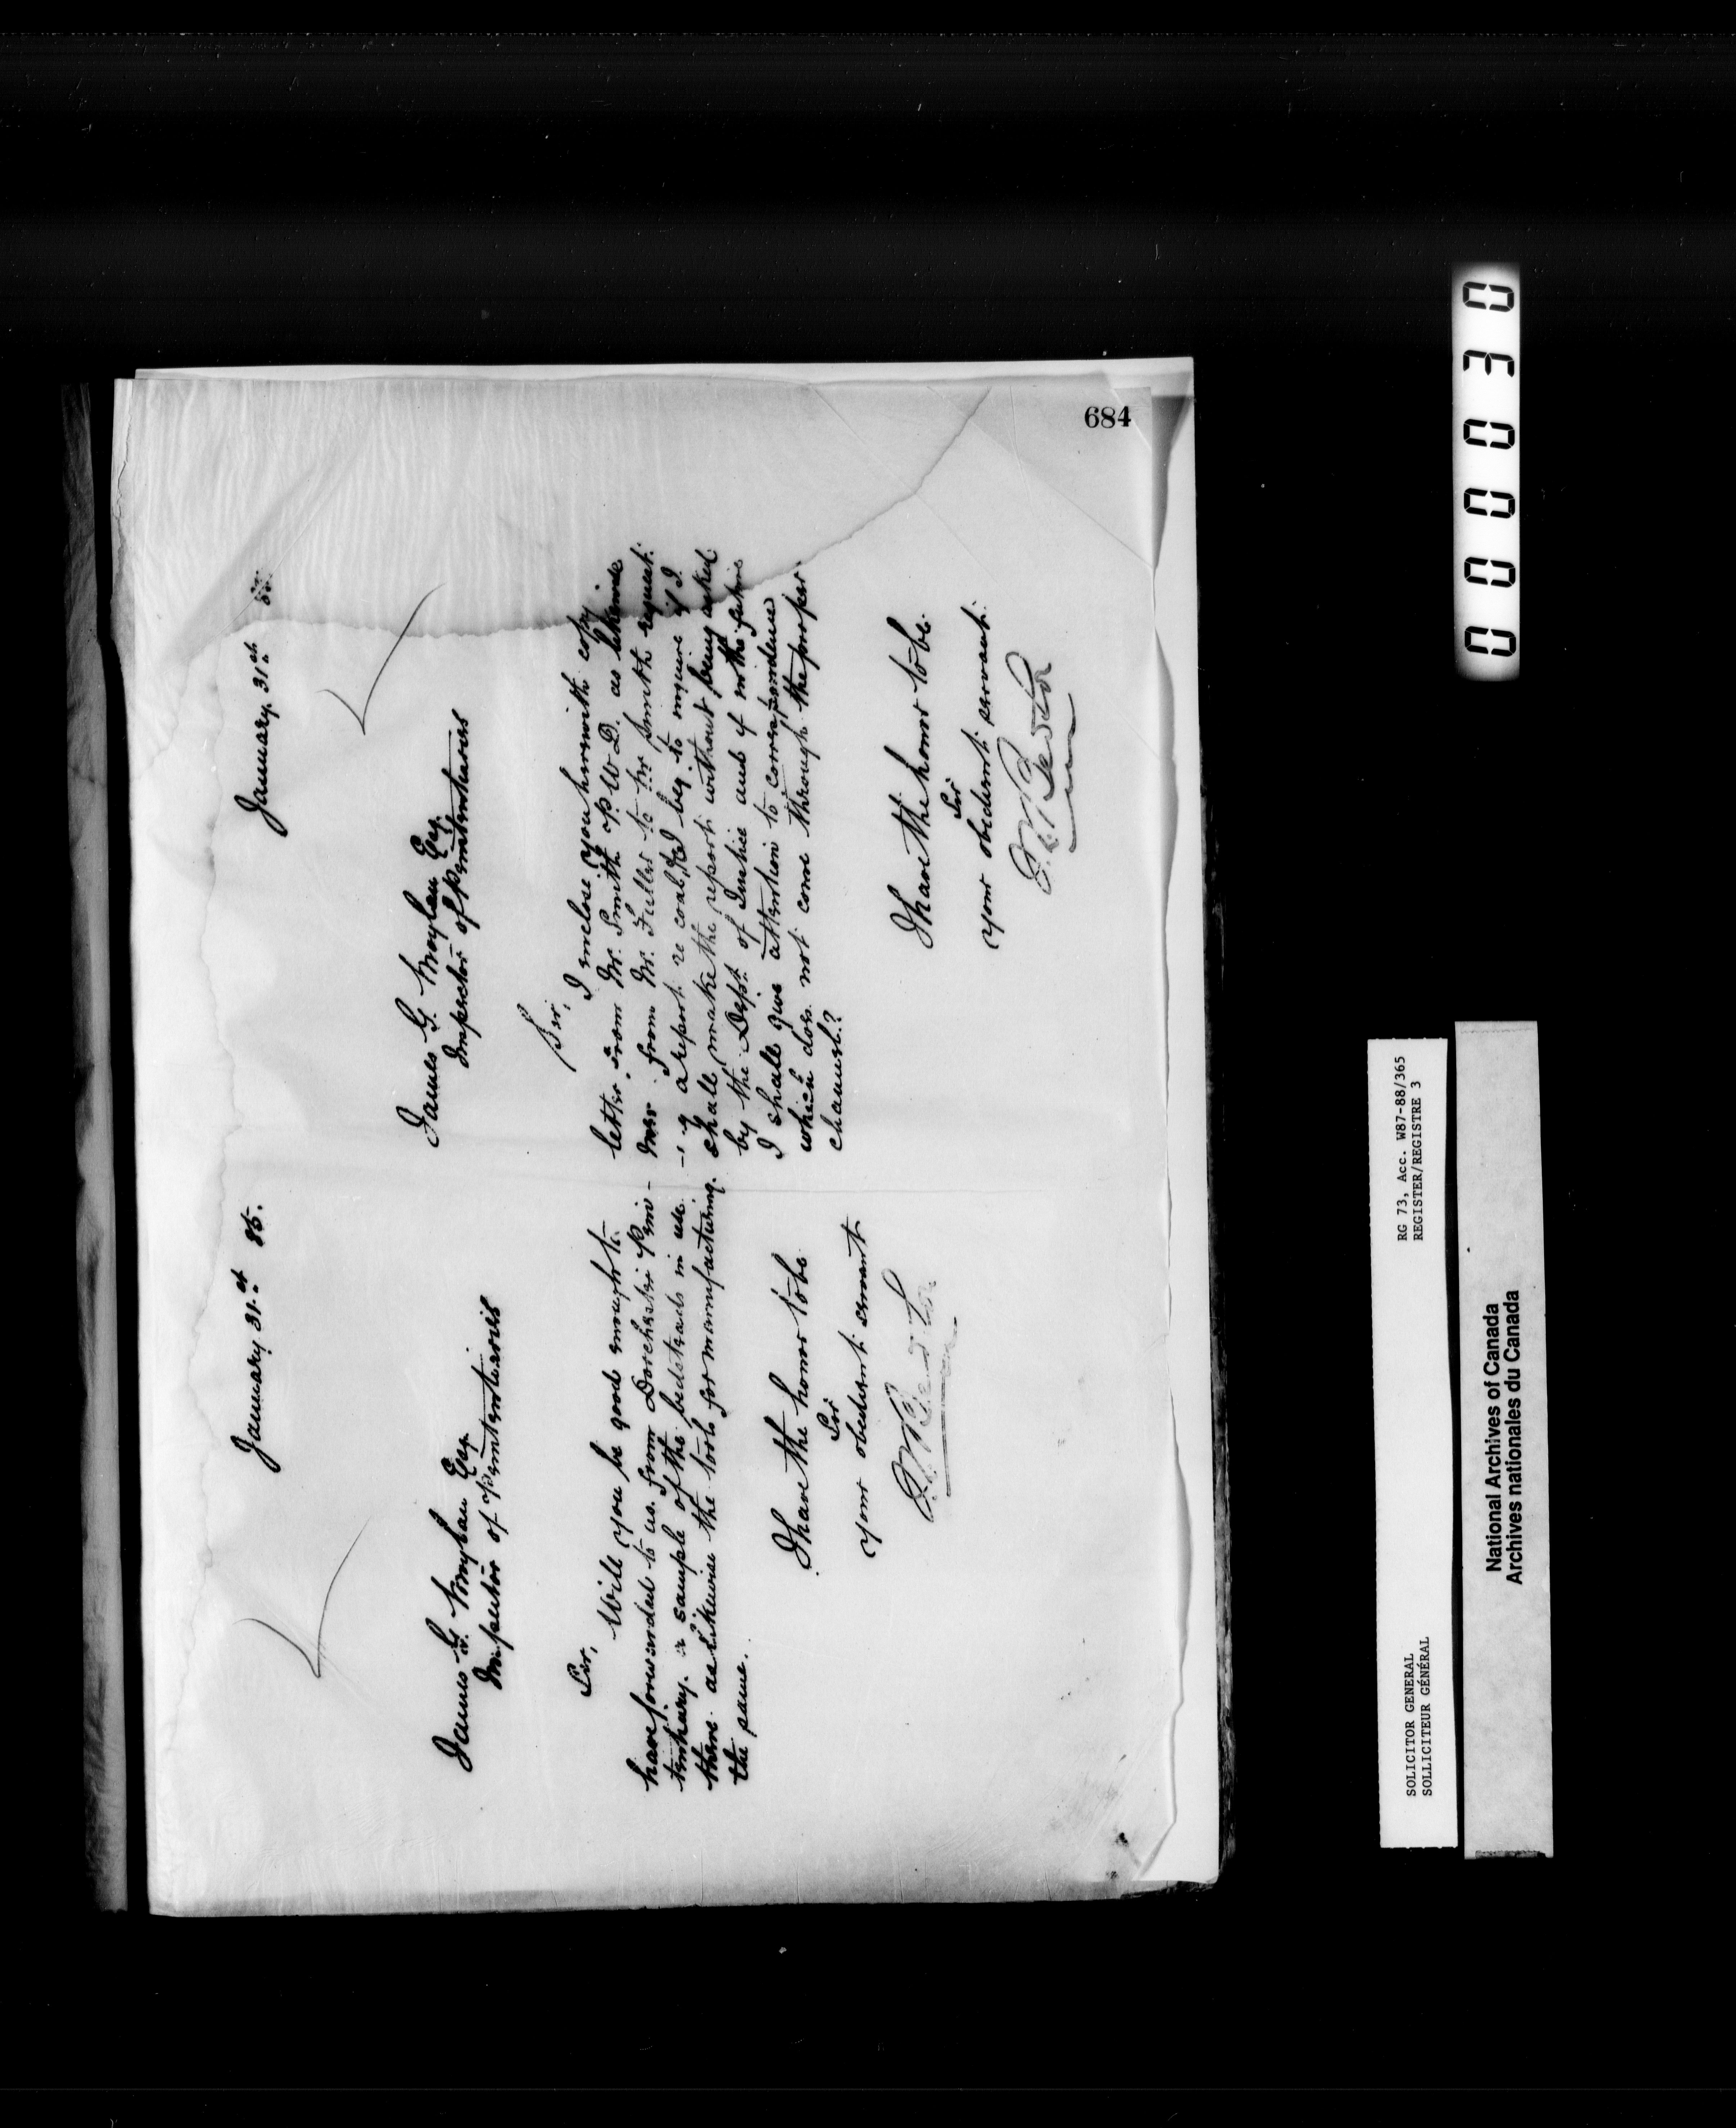 684
January 31st 85.
James G. Moylan Esq.
Inspector of Penitentiaries
Sir,
Will you be good enough to
have forwarded to us from Dorchester Peni-
tentiary. a sample of the bedsteads in use
there as likewise the tools for manufacturing
the same.
I have the honor to be
Sir
your obedient servant
January. 31st 85.
James G. Moylan Esq.
Inspector of Penitentiaries
Sir,
I enclose you herewith copy
letter from Mr. Smith of P. W. D. as likewise
from Mr. Fuller to Mr Smith request:
-ing a report re coal, &c I beg to inquire if I
shall make the report without being asked
by the Dept. of Justice and if in the future
I shall give attention to correspondence
which does not come through the proper
channel?
I have the honor to be
Sir
your obedient servant.
000030
RG 73, Acc. W87-88/365
REGISTER/REGISTRE 3
SOLICITOR GENERAL
SOLLICITEUR GÉNÉRAL
National Archives of Canada
Archives nationales du Canada